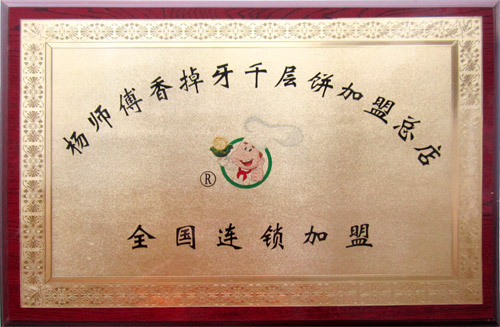 杨师傅香掉牙千层饼加盟总店
®
全国连锁加盟